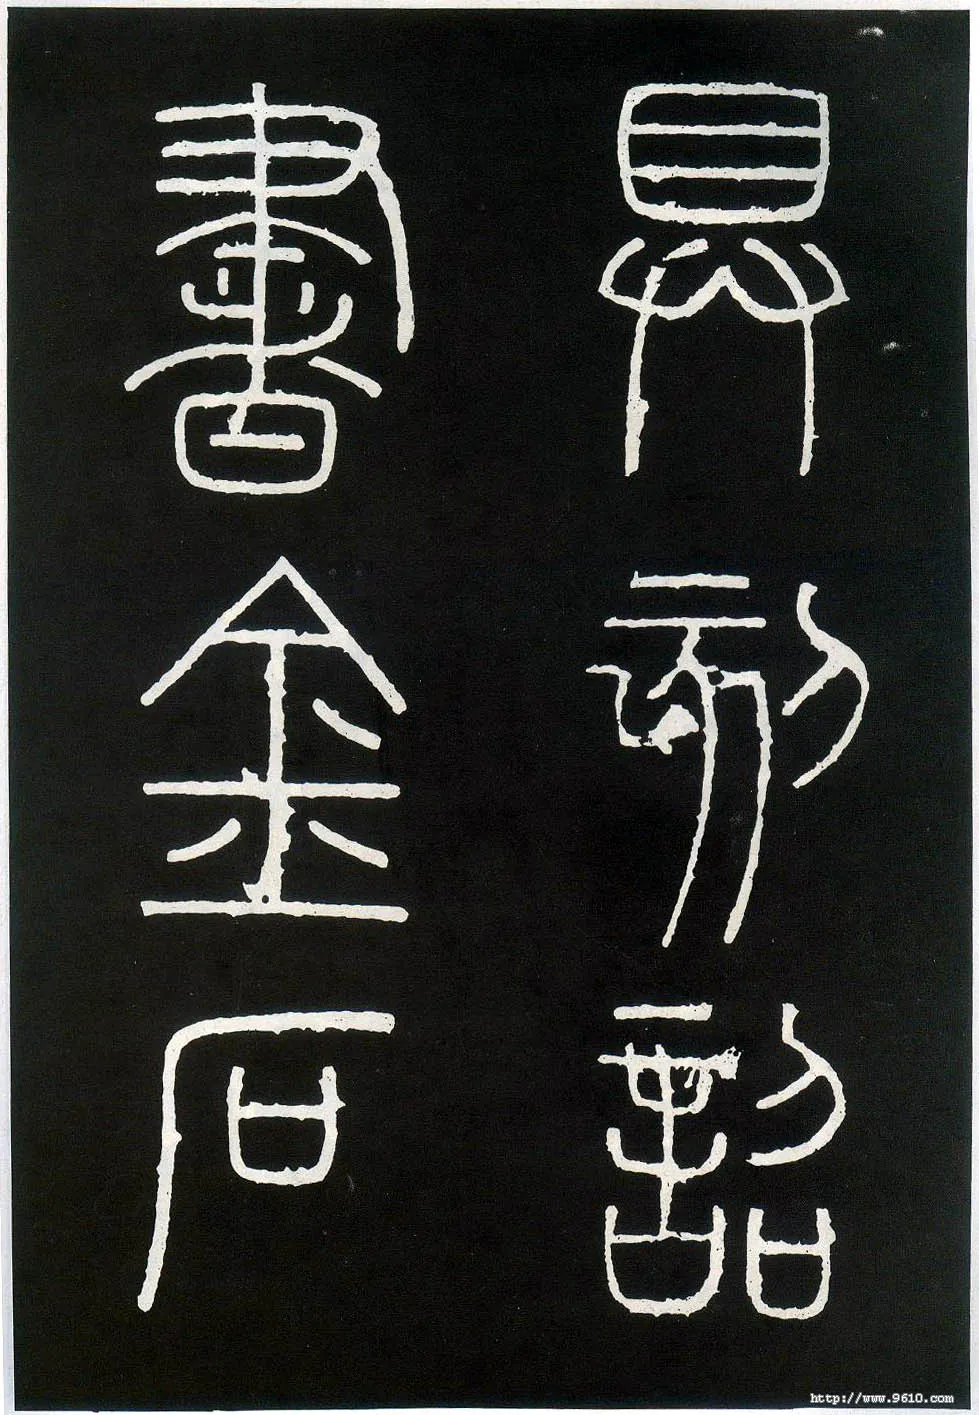 具刻詔
書金石
http://www.9610.com